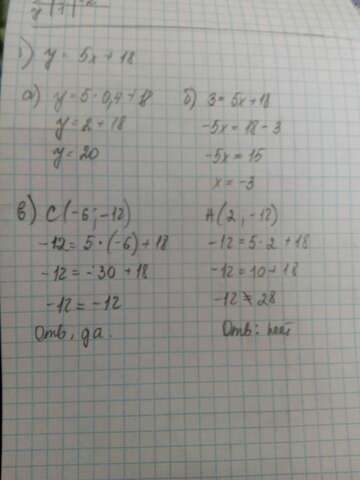 y | 1 |
1) y = 5x + 18
a) y = 5 · 0,4 + 18
y = 2 + 18
y = 20
б) 3 = 5x + 18
-5x = 18 - 3
-5x = 15
x = -3
в) C(-6; -12)
-12 = 5 · (-6) + 18
-12 = -30 + 18
-12 = -12
Отв: да.
A(2; -12)
-12 = 5 · 2 + 18
-12 = 10 + 18
-12 ≠ 28
Отв: нет